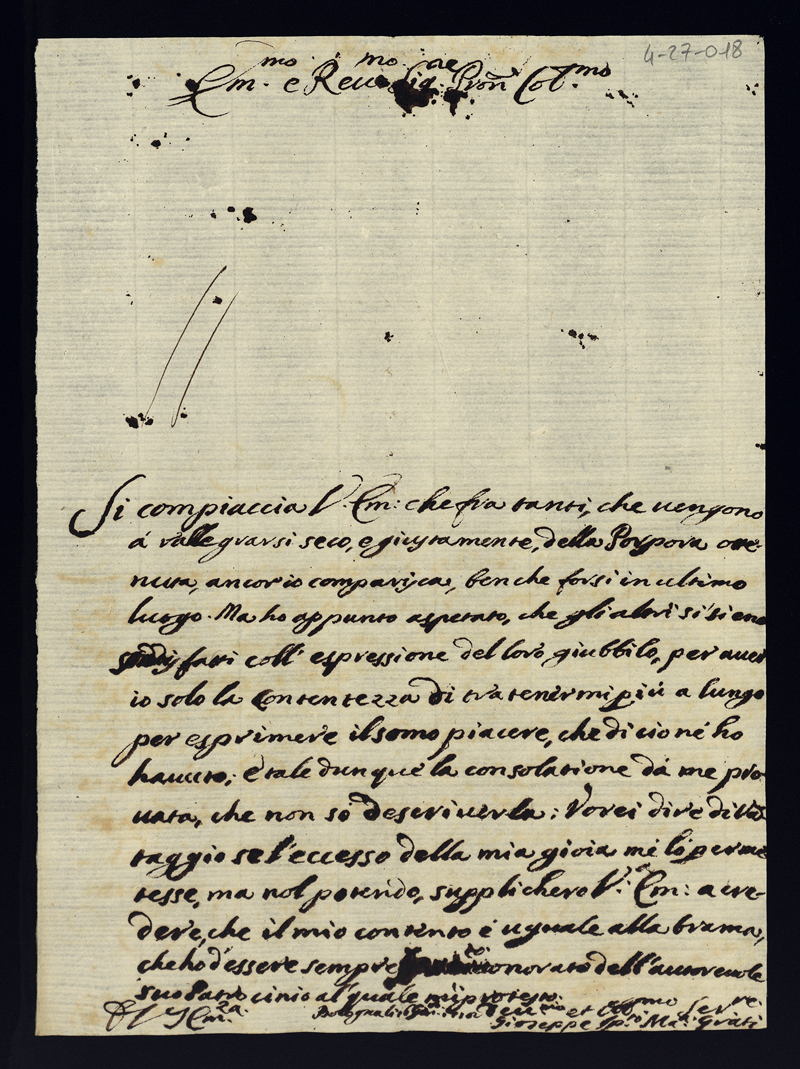 4-27-018
Em.mo e Rev.mo Sig. Pron Col.mo
Si compiaccia V. Em: che fra tanti, che vengono
á rallegrarsi seco, e giustamente, della Porpora otte-
nuta, ancor io comparisca, benche forsi in ultimo
luogo. Ma ho appunto aspetato, che gli altri si sieno
sodisfati coll' espressione del loro giubbilo, per aver
io solo la Contentezza di tratenirmi piú a lungo
per esprimere il somo piacere, che di cio né ho
havuto; é tale dunque la consolatione dá me pro-
vata, che non só descriverla; Vorei dire di van
taggio se l'eccesso della mia gioia mé ló perme
tesse, ma nol potendo, supplichero V.a Em: a cre-
dere, che il mio contento é uguale alla brama,
che ho d'essere sempre onorato dell' autorevole
suo Patrocinio al quale mi protesto.
D V Em.za Bologna Dev.mo et Obb.mo Ser.re
Gioseppe Ma. Grati